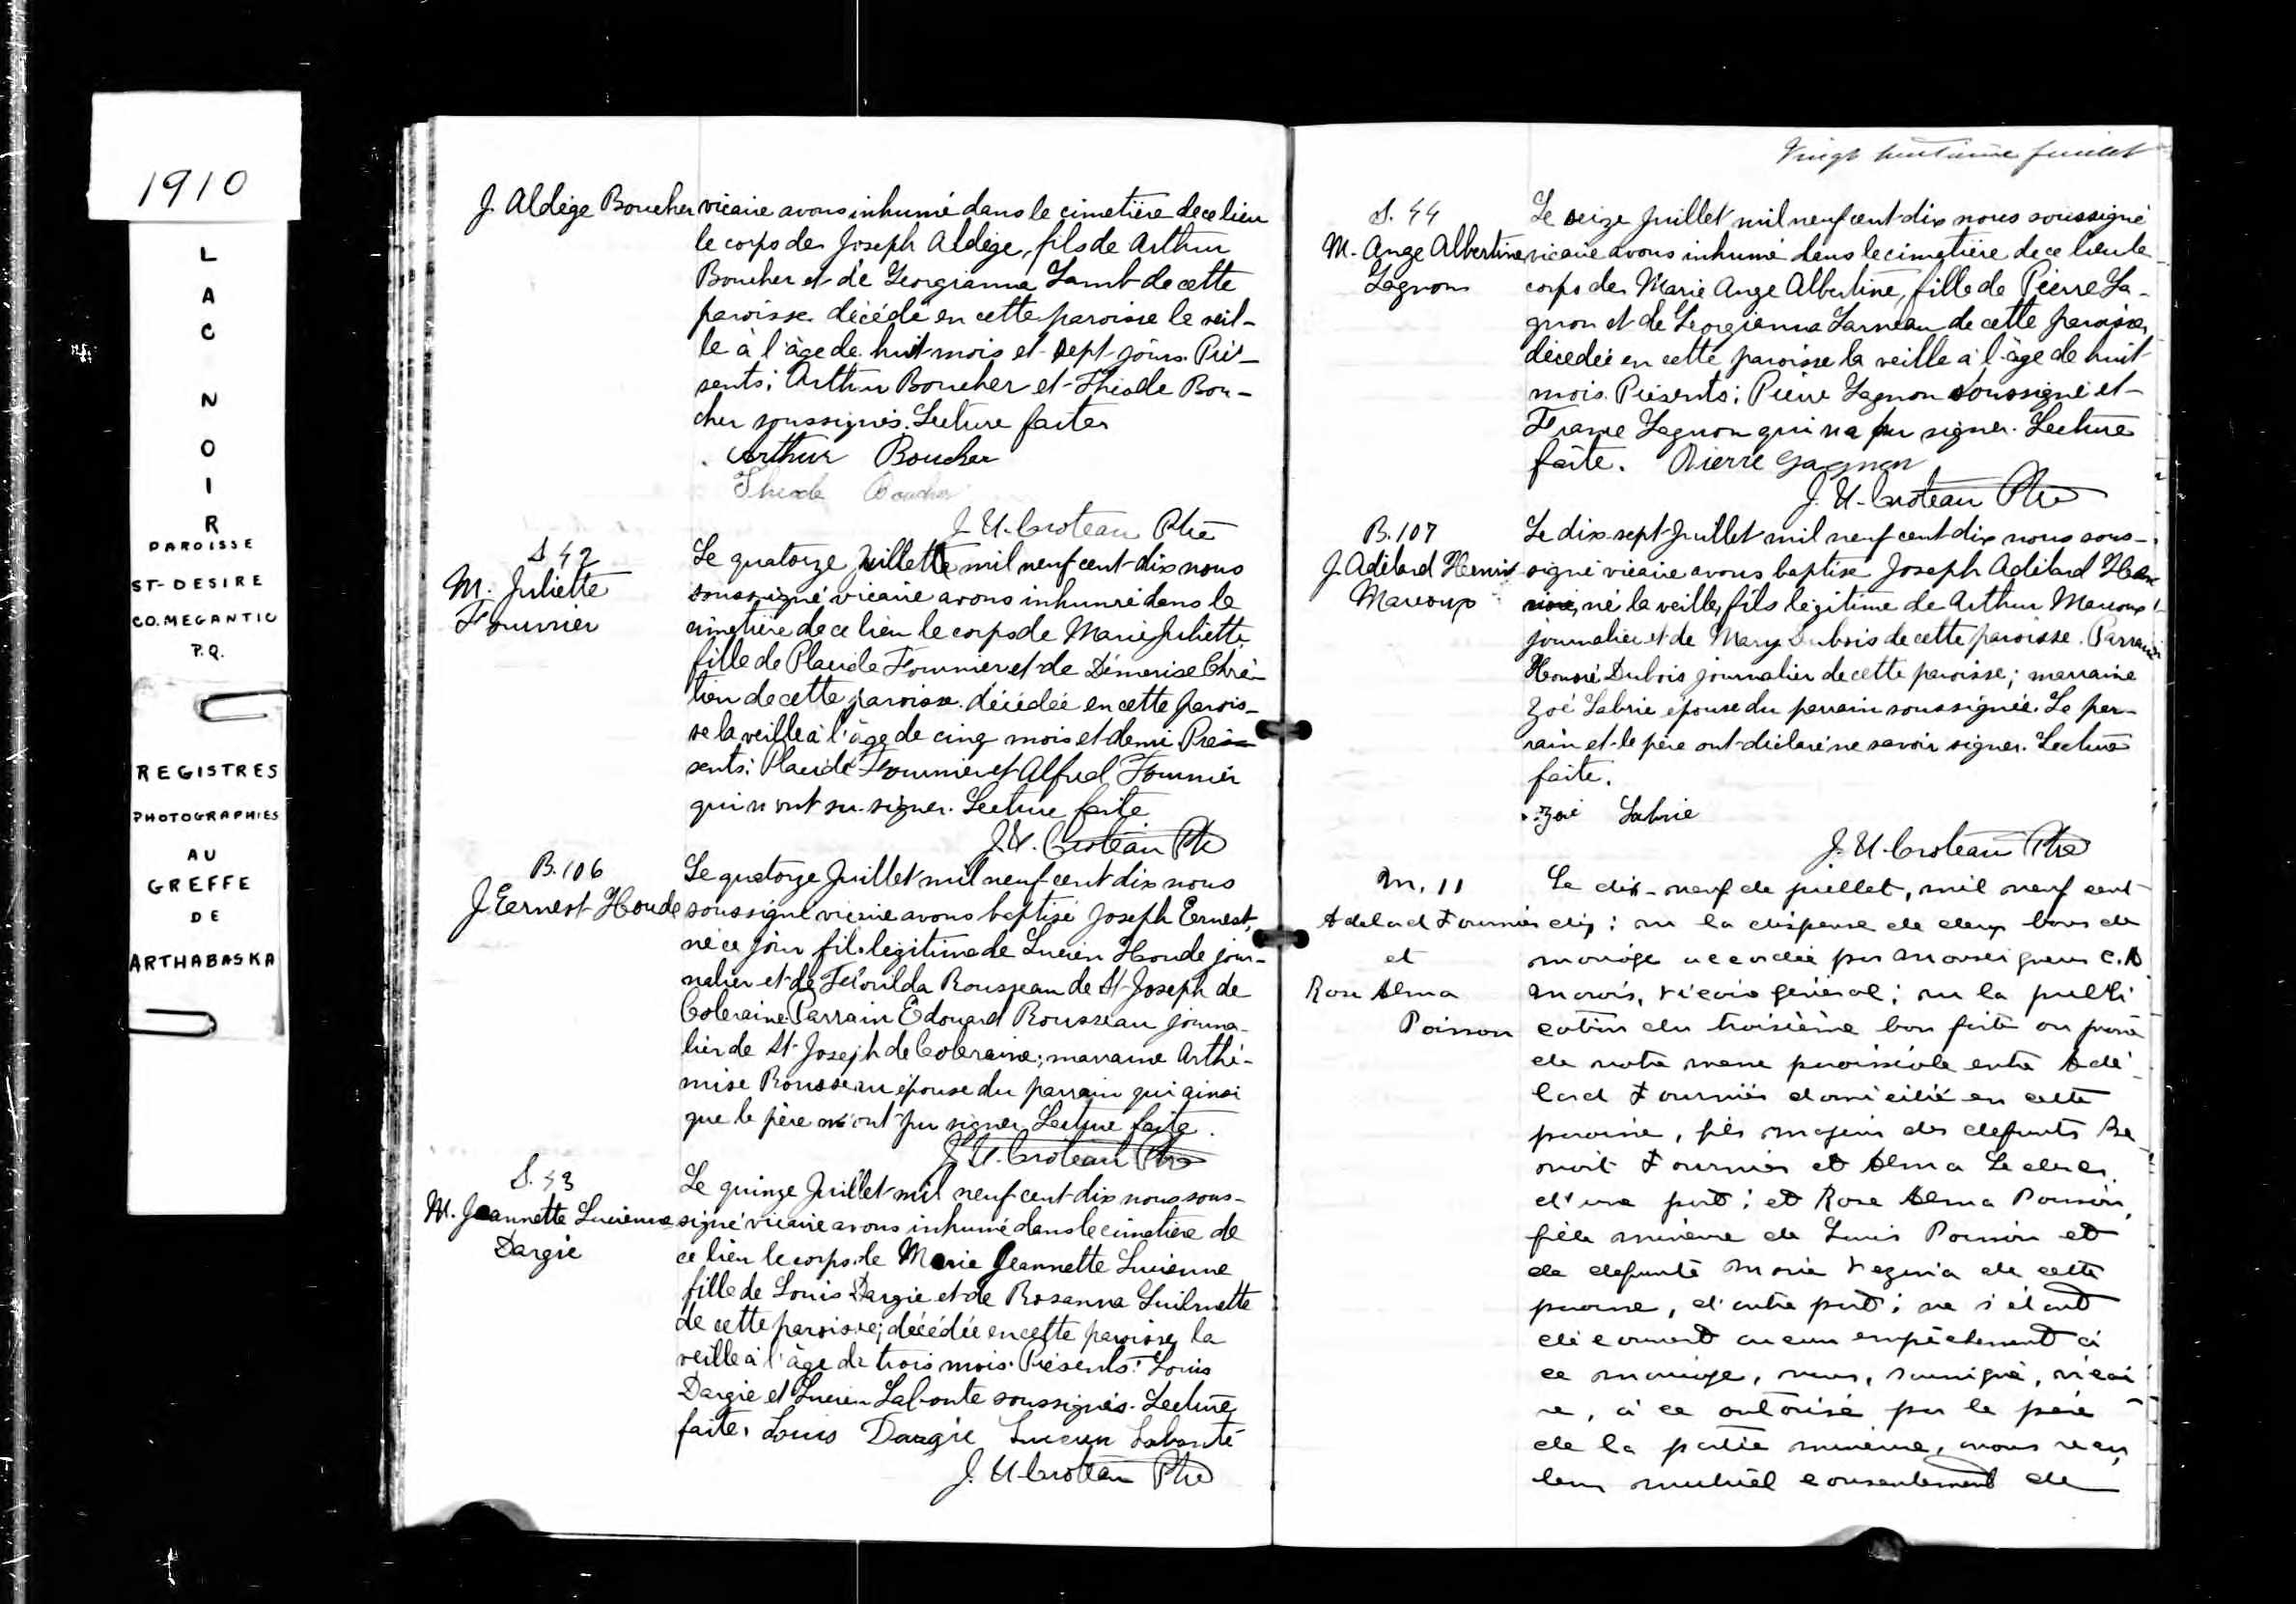 1910
LAC NOIR
PAROISSE
ST-DESIRE
CO. MEGANTIC
P.Q.
REGISTRES
PHOTOGRAPHIES
AU
GREFFE
DE
ARTHABASKA
J. Aldège Boucher
vicaire avons inhumé dans le cimetière de ce lieu
le corps de Joseph Aldège, fils de Arthur
Boucher et de Georgianna Lamb de cette
paroisse décédé en cette paroisse le veil-
le à l'âge de huit mois et sept jours. Pré-
sents: Arthur Boucher et Théode Bou-
cher soussignés. Lecture faite
Arthur Boucher
Théode Boucher
J. U. Croteau Ptre
S 42
M. Juliette
Fournier
Le quatorze Juillet mil neuf cent dix nous
soussigné vicaire avons inhumé dans le
cimetière de ce lieu le corps de Marie Juliette
fille de Placide Fournier et de Démerise Chré-
tien de cette paroisse décédée en cette parois-
se la veille à l'âge de cinq mois et demi. Pré-
sents: Placide Fournier et Alfred Fournier
qui n'ont su signer. Lecture faite
J. U. Croteau Ptre
B. 106
J. Eernest Houde
Le quatorze Juillet mil neuf cent dix nous
soussigné vicaire avons baptisé Joseph Eernest,
né ce jour fils légitime de Lucien Houde jour-
nalier et de Rousseau de St-Joseph de
Coleraine. Parrain Edouard Rousseau journa-
lier de St-Joseph de Coleraine; marraine Arthé-
mise Rousseau épouse du parrain qui ainsi
que le père n'ont pu signer. Lecture faite.
J. U. Croteau Ptre
S. 43
M. Jeannette Lucienne
Dargie
Le quinze Juillet mil neuf cent dix nous sous-
signé vicaire avons inhumé dans le cimetière de
ce lieu le corps de Marie Jeannette Lucienne
fille de Louis Dargie et de Rosanna Guilmette
de cette paroisse; décédée en cette paroisse la
veille à l'âge de trois mois. Présents: Louis
Dargie et Lucien Labonté soussignés. Lecture
faite. Louis Dargie Lucien Labonté
J. U. Croteau Ptre
Vingt huitième feuillet
S. 44
M. Ange Albertine
Gagnon
Le seize Juillet mil neuf cent dix nous soussigné
vicaire avons inhumé dans le cimetière de ce lieu le
corps de Marie Ange Albertine, fille de Pierre Ga-
gnon et de Georgianna Garneau de cette paroisse,
décédée en cette paroisse la veille à l'âge de huit
mois. Présents: Pierre Gagnon soussigné et
Gagnon qui n'a pu signer. Lecture
faite. Pierre Gagnon
J. U. Croteau Ptre
B. 107
J. Adélard Henri
Marcoux
Le dix-sept Juillet mil neuf cent dix nous sous-
signé vicaire avons baptisé Joseph Adélard Hen
né la veille, fils légitime de Arthur Marcoux
journalier et de Mary Dubois de cette paroisse. Parrain
Honoré Dubois journalier de cette paroisse; marraine
Zoé Labrie épouse du parrain soussignée. Le par-
rain et le père ont déclaré ne savoir signer. Lecture
faite.
Zoé Labrie
J. U. Croteau Ptre
M. 11
Adelard Fournier
et
Rose Alma
Poisson
Le dix-neuf de juillet, mil neuf cent
dix: vu la dispense de deux bans de
mariage accordée par Monseigneur C. A.
Marois, vicaire général; vu la publi
cation du troisième ban faite au prône
de notre messe paroissiale entre Adé-
lard Fournier domicilié en cette
paroisse, fils majeur des defunts Be
noit Fournier et Alma Leclerc
d'une part; et Rose Alma Poisson,
fille mineure de Louis Poisson et
de defunte Marie Vezina de cette
paroisse, d'autre part; ne s'étant
découvert aucun empêchement à
ce mariage, nous, soussigné, vicai
re, à ce autorisé par le père
de la partie mineure, avons reçu
leur mutuel consentement de